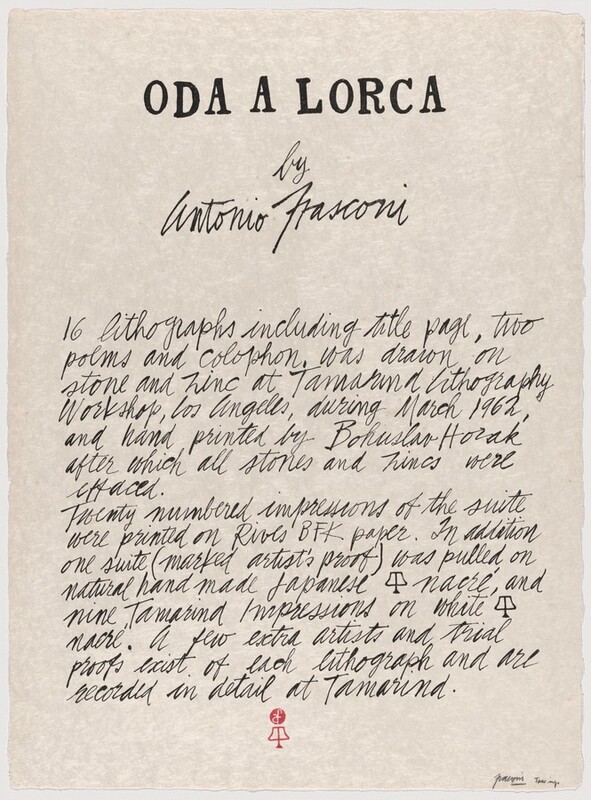 ODA A LORCA
by
Antonio Frasconi
16 lithographs including title page, two
poems and colophon, was drawn on
stone and zinc at Tamarind Lithography
Workshop, Los Angeles, during March 1962,
and hand printed by Bohuslav Horak
after which all stones and zincs were
effaced.
Twenty numbered impressions of the suite
were printed on Rives BFK paper. In addition
one suite (marked artist's proof) was pulled on
natural hand made Japanese nacré, and
nine Tamarind Impressions on white
nacré. A few extra artists and trial
proofs exist of each lithograph and are
recorded in detail at Tamarind.
Frasconi Tam. imp.